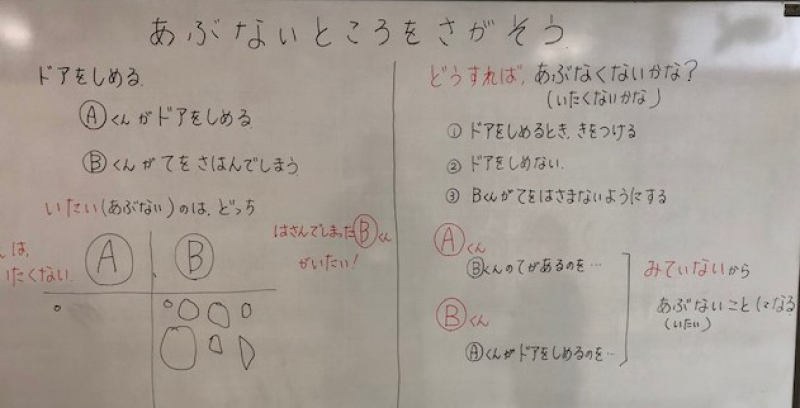 あぶないところをさがそう
ドアをしめる
Ⓐくんがドアをしめる
Ⓑくんがてをさはんでしまう
いたい(あぶない)のは、どっち
んは、
いたくない
Ⓐ Ⓑ
はさんでしまったⒷくん
がいたい!
どうすれば、あぶなくないかな?
(いたくないかな)
① ドアをしめるとき、きをつける
② ドアをしめない.
③ Bくんがてをはさまないようにする
Ⓐくん
Ⓑくんのてがあるのを…
Ⓑくん
Ⓐくんがドアをしめるのを…
みていないから
あぶないことになる
(いたい)